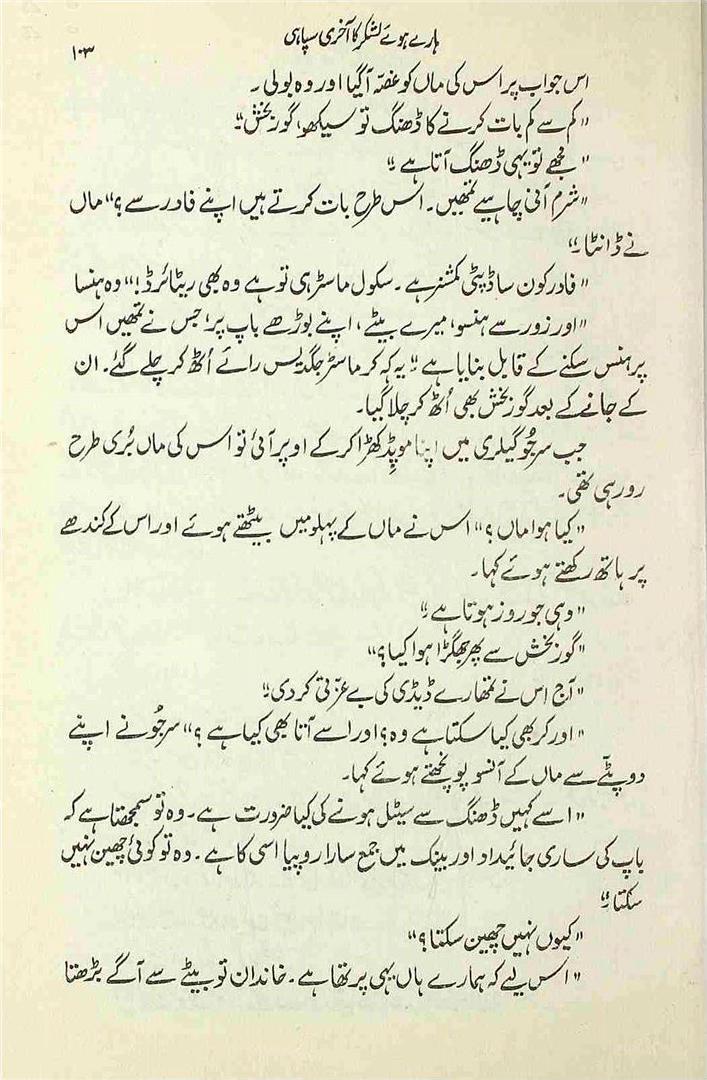 ہارے ہوئے لشکر کا آخری سپاہی
۱۰۳
اس جواب پر اس کی ماں کو غصّہ آگیا اور وہ بولی۔
"کم سے کم بات کرنے کا ڈھنگ تو سیکھو، گوربخش"۔
"مجھے تو یہی ڈھنگ آتا ہے"۔
"شرم آنی چاہیے تمھیں۔ اس طرح بات کرتے ہیں اپنے فادر سے؟" ماں
نے ڈانٹا۔"
"فادر کون سا ڈپٹی کمشنر ہے۔ سکول ماسٹر ہی تو ہے وہ بھی ریٹائرڈ!" وہ ہنسا
"اور زور سے ہنسو، میرے بیٹے، اپنے بوڑھے باپ پر، جس نے تمھیں اس
پر ہنس سکنے کے قابل بنایا ہے"۔ یہ کہہ کر ماسٹر جگدیس رائے اُٹھ کر چلے گئے۔ ان
کے جانے کے بعد گوربخش بھی اُٹھ کر چلا گیا۔
جب سرجُو گیلری میں اپنا موپِڈ کھڑا کر کے اوپر آئی تو اس کی ماں بُری طرح
رو رہی تھی۔
"کیا ہوا ماں؟" اس نے ماں کے پہلو میں بیٹھتے ہوئے اور اس کے کندھے
پر ہاتھ رکھتے ہوئے کہا۔
"وہی جو روز ہوتا ہے"۔
"گوربخش سے پھر جھگڑا ہوا کیا؟"
"آج اس نے تمھارے ڈیڈی کی بے عزّتی کر دی"۔
"اور کر بھی کیا سکتا ہے وہ؟ اور اسے آتا بھی کیا ہے؟" سرجُو نے اپنے
دوپٹّے سے ماں کے آنسو پونچھتے ہوئے کہا۔
"اسے کہیں ڈھنگ سے سیٹل ہونے کی کیا ضرورت ہے۔ وہ تو سمجھتا ہے کہ
باپ کی ساری جائیداد اور بینک میں جمع سارا روپیا اسی کا ہے۔ وہ تو کوئی چھین نہیں
سکتا"۔
"کیوں نہیں چھین سکتا؟"
"اس لیے کہ ہمارے ہاں یہی پرتھا ہے۔ خاندان تو بیٹے سے آگے بڑھتا